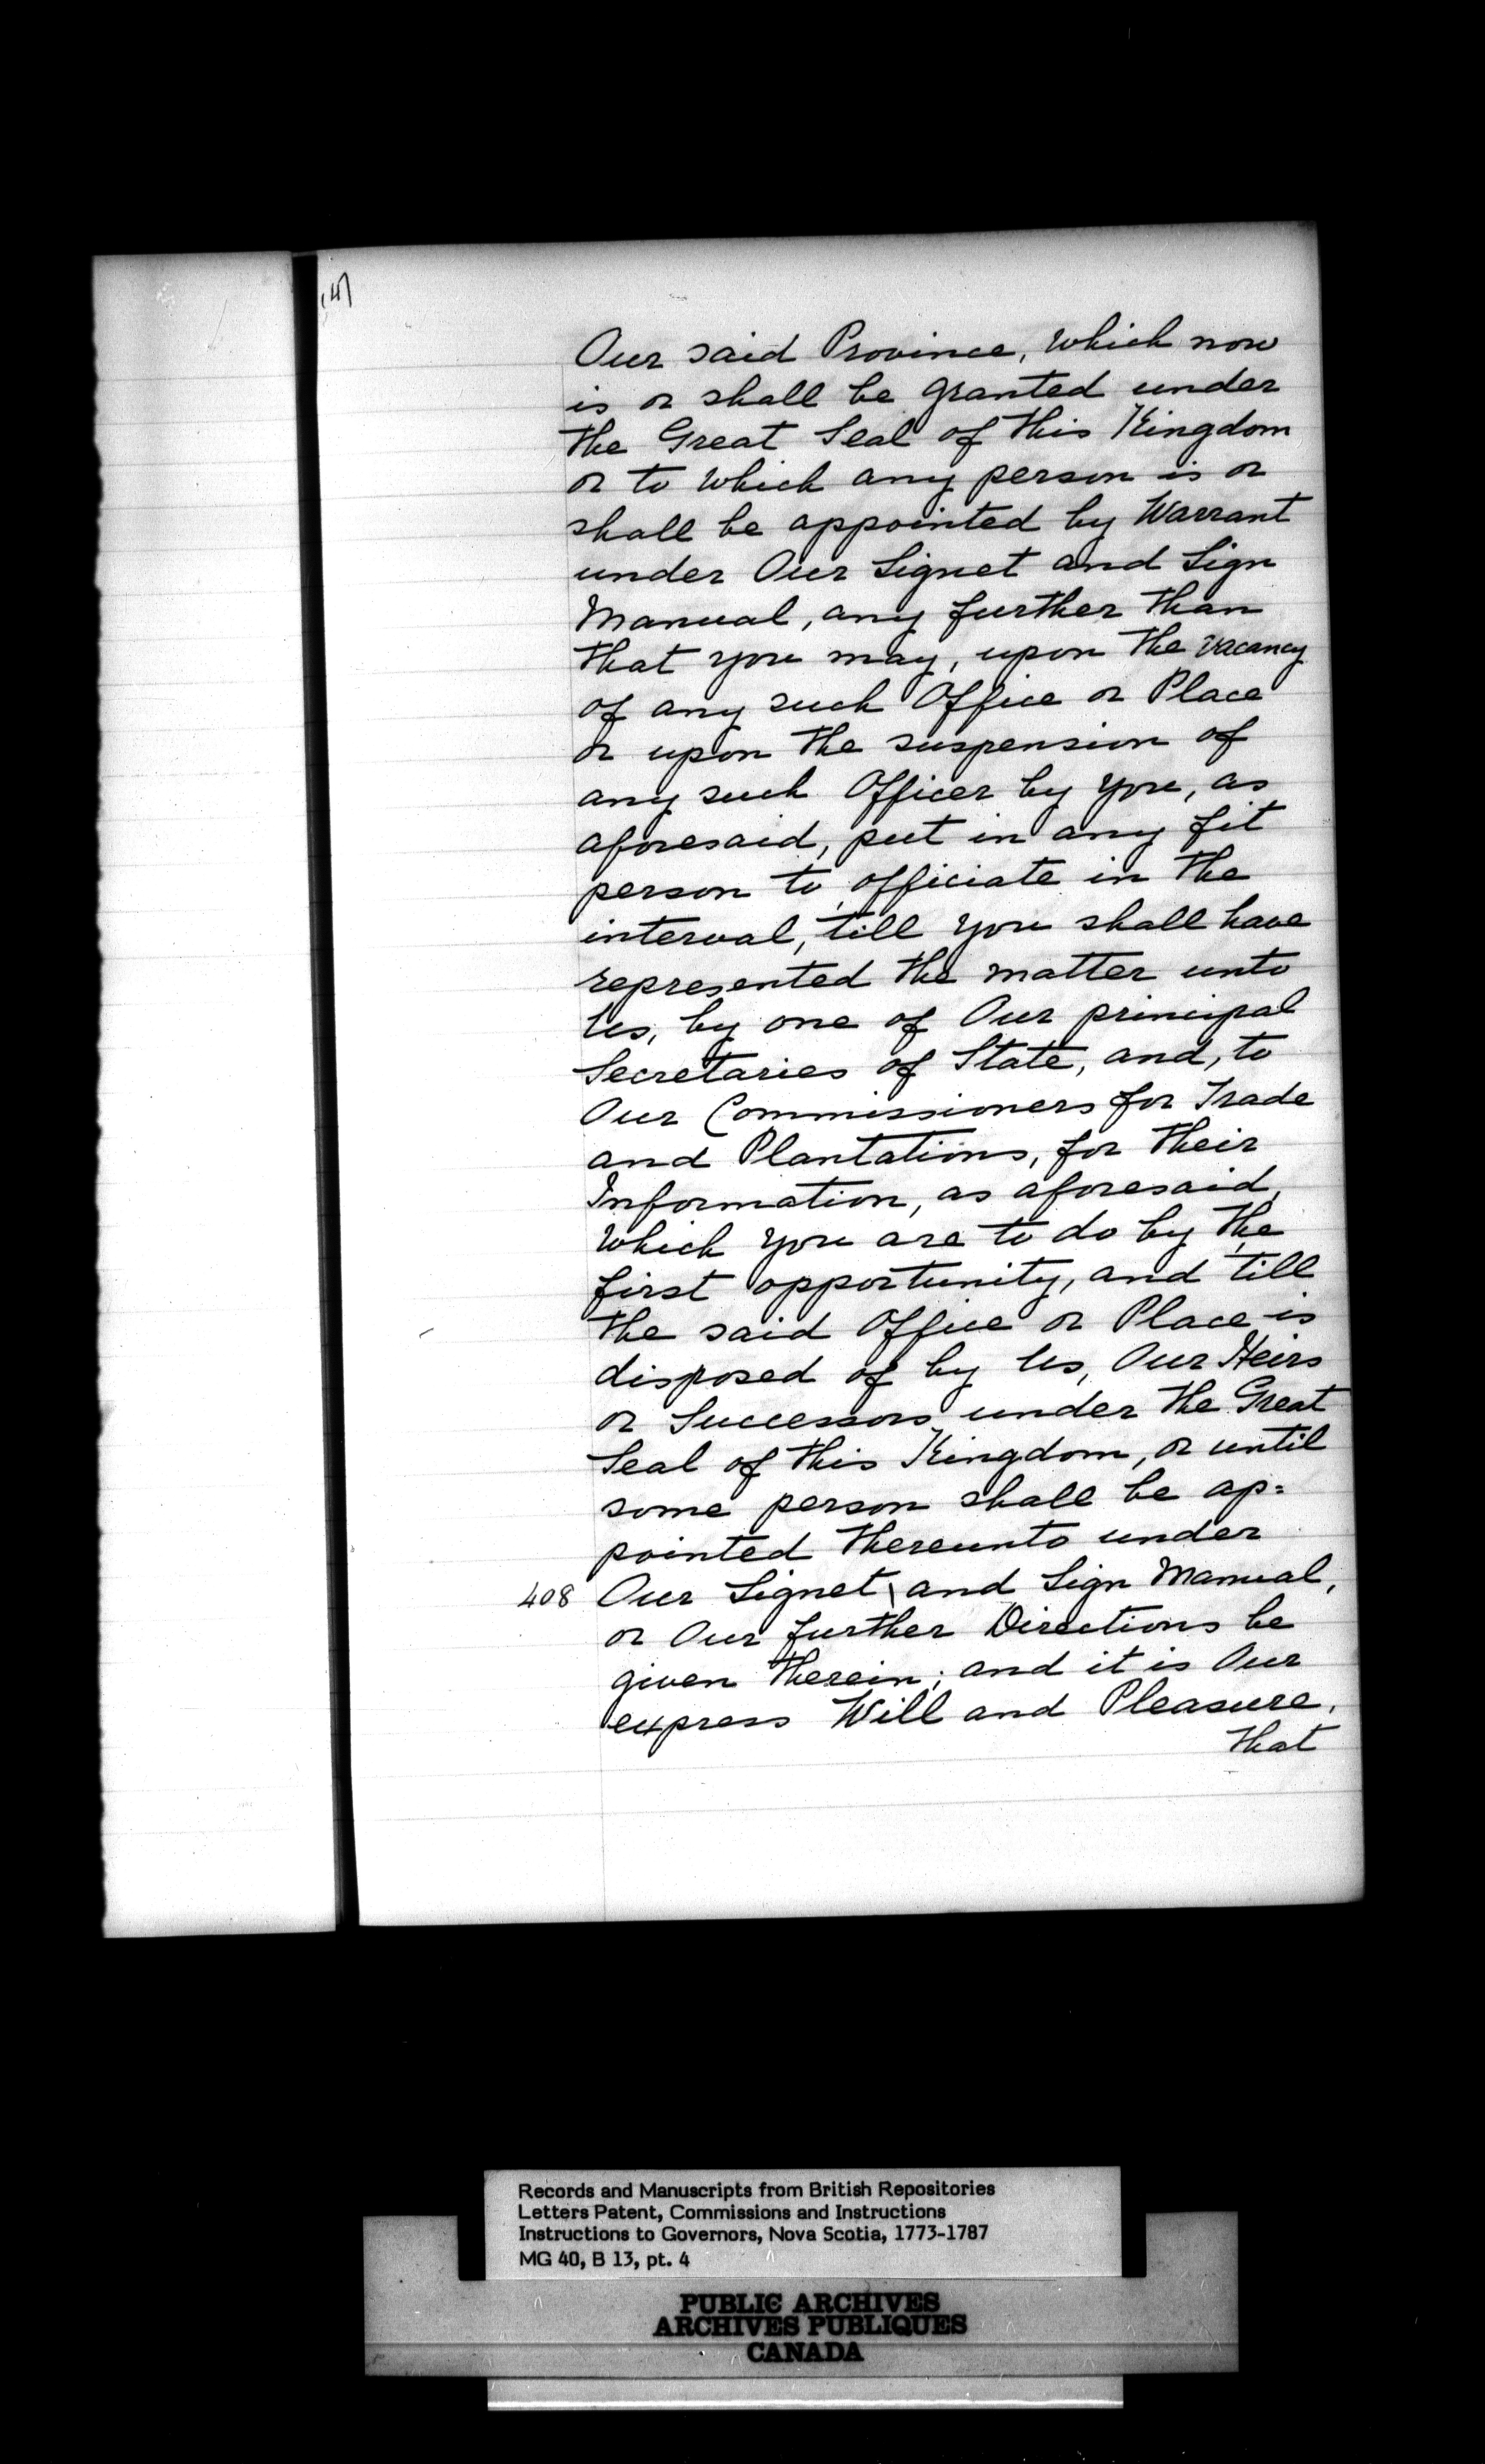 Our said Province, which now
is or shall be granted under
the Great Seal of this Kingdom
or to which any person is or
shall be appointed by Warrant
under Our Signet and Sign
Manual, any further than
that you may, upon the vacancy
of any such Office or Place
or upon the suspension of
any such Officer by you, as
aforesaid, put in any fit
person to officiate in the
interval, till you shall have
represented the matter unto
Us, by one of Our principal
Secretaries of State, and, to
Our Commissioners for Trade
and Plantations, for their
Information, as aforesaid,
which you are to do by the
first opportunity, and till
the said Office or Place is
disposed of by Us, Our Heirs
or Successors under the Great
Seal of this Kingdom, or until
some person shall be ap=
pointed thereunto under
408 Our Signet \ and Sign Manual,
or Our further Directions be
given therein; and it is Our
express Will and Pleasure,
that
Records and Manuscripts from British Repositories
Letters Patent, Commissions and Instructions
Instructions to Governors, Nova Scotia, 1773-1787
MG 40, B 13, pt. 4
PUBLIC ARCHIVES
ARCHIVES PUBLIQUES
CANADA